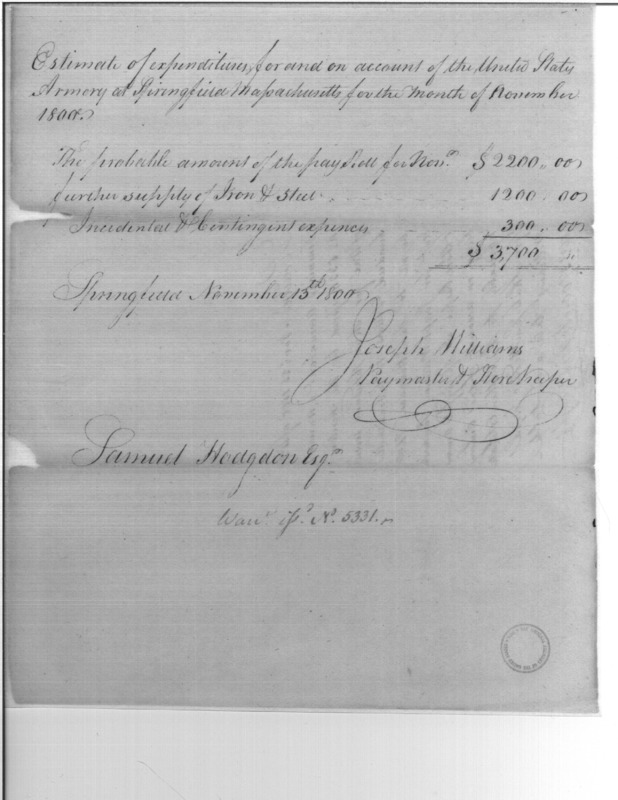 Estimate of expenditures, for and on account of the United States
Armory at Springfield Massachusetts for the month of November
1800.
The probable amount of the pay Roll for Novr. $ 2200..00
further supply of Iron & Steel 1200.00
Incidental & Contingent expences 300..00
$ 3,700
Springfield November 13th 1800
Joseph Williams
Paymaster & Store keeper
Samuel Hodgdon Esqr.
No. 5331.